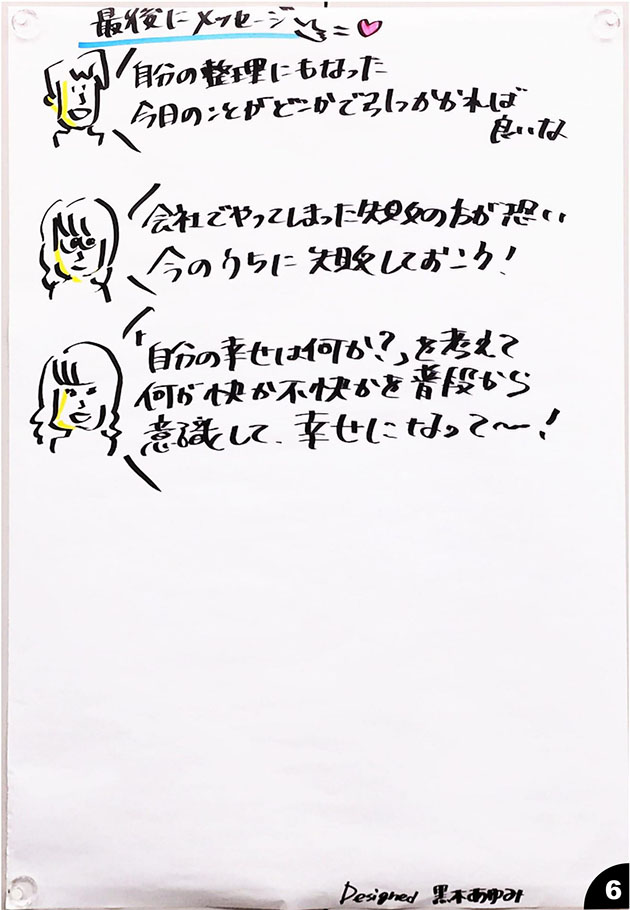 最後にメッセージ
自分の整理にもなった
今日のことがどこかでひっかかれば
良いな
会社でやってしまった失敗の方が恐い
今のうちに失敗しておこう!
「自分の幸せは何か?」を考えて
何が快か不快かを普段から
意識して、幸せになって〜!
Designed 黒木あゆみ
6